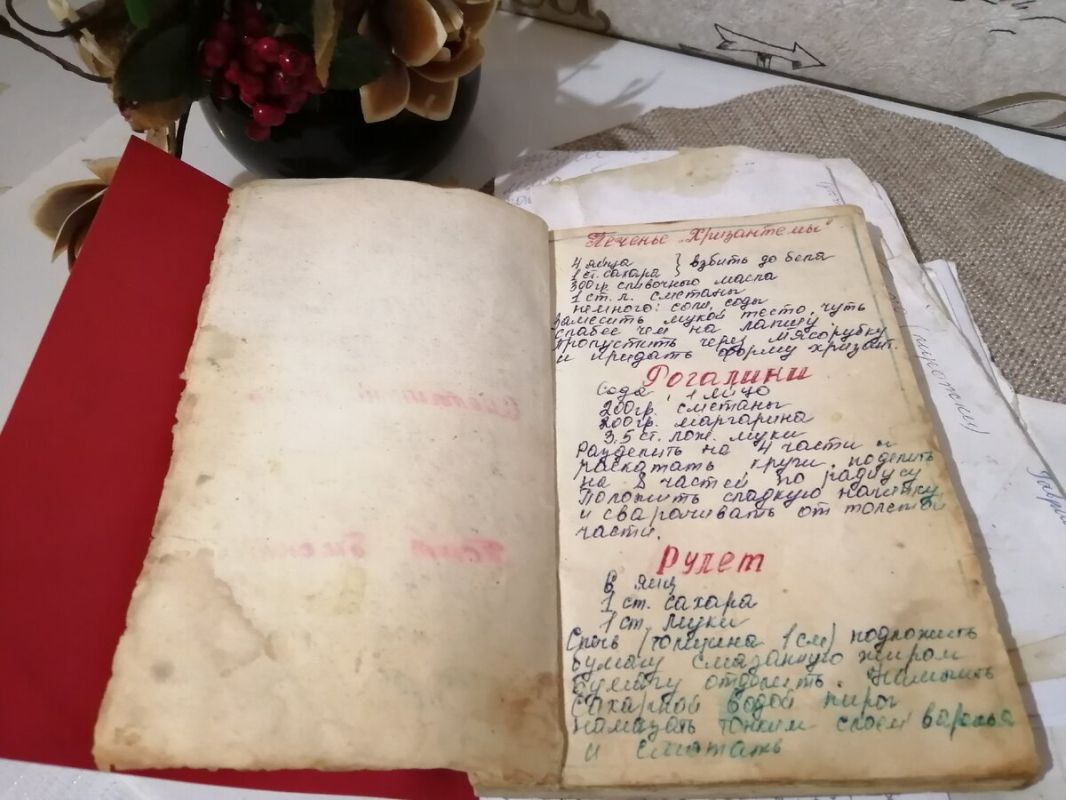 Печенье „Хризантемы"
4 яйца } взбить до бела
1 ст. сахара
300 гр. сливочного масла
1 ст. л. сметаны
немного: соли, соды
Замесить мукой тесто, чуть
слабее чем на лапшу
пропустить через мясорубку
и придать форму хризант.
Рогалини
Сода, 1 яйцо
200гр. сметаны
200гр. маргарина
3,5 ст. лож. муки
Разделить на 4 части и
раскатать круги, поделить
на 8 частей по радиусу
Положить сладкую начинку
и сварачивать от толстой
части.
Рулет
6 яиц
1 ст. сахара
1 ст. муки
Спечь (толщина 1 см) подложить
бумагу смазанную жиром
бумагу отделить.
сахарной водой пирог
намазать тонким слоем варенья
и смотать
(пирожки)